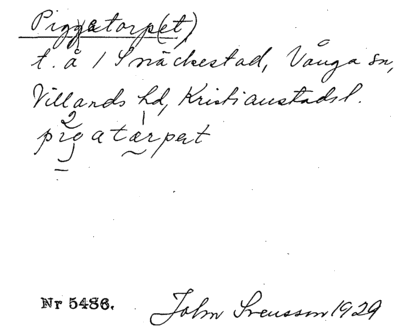 Piggatorp(et)
t. å 1 Snäckestad, Vånga sn,
Villands hd, Kristianstads l.
Nr 5486.
John Svensson 1929